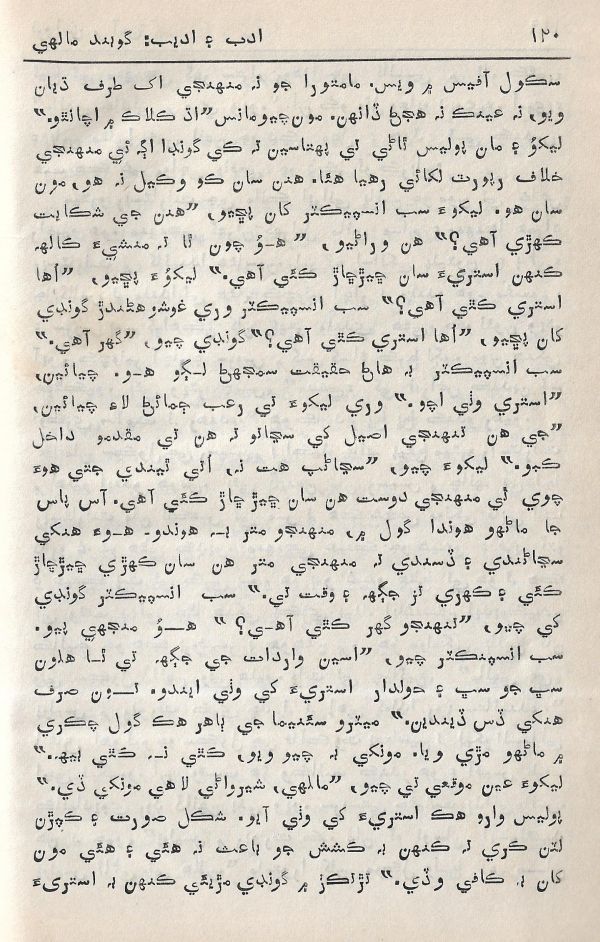 ۱۲۰ ادب ۽ اديب: گوبند مالهي
سڪول آفيس ۾ ويس. مامتورا جو نہ منهنجي اک طرف ڌيان
ويو، نہ عينڪ نہ هجڻ ڏانهن. مون چيومانس ”اڌ ڪلاڪ ۾ اچانٿو.“
ليکوُ ۽ مان پوليس ٿاڻي تي پهتاسين تہ ڪي گوندا اڳ ئي منهنجي
خلاف رپورٽ لکائي رهيا هئا. هنن سان ڪو وڪيل نہ هو، مون
سان هو. ليکوءَ سب انسپيڪٽر کان پڇيو، ”هنن جي شڪايت
ڪهڙي آهي؟“ هن وراڻيو، ” هـوُ چون ٿا تہ منشيءَ ڪالهہ
ڪنهن استريءَ سان ڇيڙڇاڙ ڪئي آهي.“ ليکوُءَ پڇيو، ”اُها
استري ڪٿي آهي؟“ سب انسپيڪٽر وري غوشو هڻندڙ گوندي
کان پڇيو، ”اُها استري ڪٿي آهي؟“ گوندي چيو، ”گهر آهي.“
سب انسپيڪٽر بہ هاڻ حقيقت سمجهڻ لـڳو هـو. چيائين،
”استري وٺي اچو.“ وري ليکوءَ تي رعب ڄمائڻ لاءِ چيائين،
”جي هن تنهنجي اصيل کي سڃاتو تہ هن تي مقدمو داخل
ڪيو.“ ليکوءَ چيو، ”سڃاڻپ هت نہ، اُتي ٿيندي جتي هوءَ
چوي ٿي منهنجي دوست هن سان ڇيڙ ڇاڙ ڪئي آهي. آس پاس
جا ماڻهو هوندا گول ۾، منهنجو متر بـہ هوندو. هـوءَ هنکي
سڃاڻندي ۽ ڏسندي تہ منهنجي متر هن سان ڪهڙي ڇيڙڇاڙ
ڪئي ۽ ڪهري نز جڳهہ ۽ وقت تي.“ سب انسپيڪٽر گوندي
کي چيو، ”تنهنجو گهر ڪٿي آهـي؟ “ هـــوُ منجهي پيو.
سب انسپيڪٽر چيو، ”اسين واردات جي جڳهہ تي ٿـا هلون
سڀ جو سڀ ۽ حولدار استريءَ کي وٺي ايندو. تــون صرف
هنکي ڏس ڏيندين.“ ميٽرو سئنيما جي ٻاهر هڪ گول چڪري
۾ ماڻهو مڙي ويا. مونکي بہ چيو ويو، ڪٿي نـہ ڪٿي بيهہ.“
ليکوءَ عين موقعي تي چيو، ”مالهي، شيرواڻي لاهي مونکي ڏي.“
پوليس وارو هڪ استريءَ کي وٺي آيو. شڪل صورت ۽ ڪپڙن
لٽن ڪري تہ ڪنهن بہ ڪشش جو باعث نہ هئي ۽ هئي مون
کان بہ ڪافي وڏي.“ ۾ گوندي مڙيئي ڪنهن بہ استريءَ